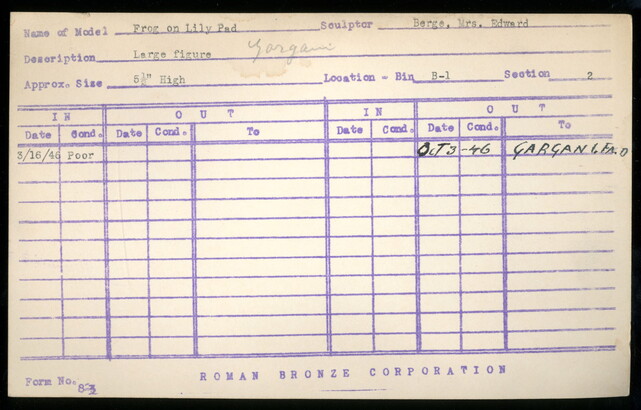 Name of Model Frog on Lily Pad Sculptor Berge, Mrs. Edward
Description Large figure Gargani
Approx. Size 5½" High Location - Bin B-1 Section 2
IN OUT IN OUT
Date Cond. Date Cond. To Date Cond. Date Cond. To
3/16/46 Poor OCT 3-46 GARGANI
ROMAN BRONZE CORPORATION
Form No. 83